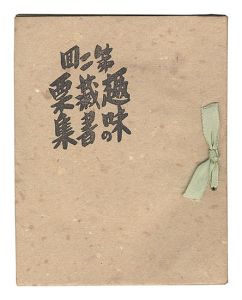 趣味の
蔵書票集
第二回